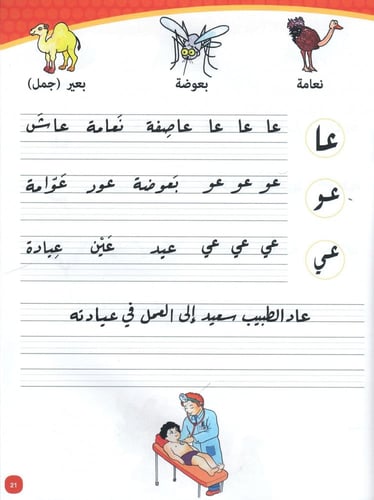 نعامة بعوضة بعير (جمل)
عا عا عا عا عاصِفة نَعامة عاشَ
عو عو عو عو بَعوضة عود عَوّامة
عي عي عي عي عيد عَيْن عِيادة
عاد الطبيب سعيد إلى العمل في عيادته
21